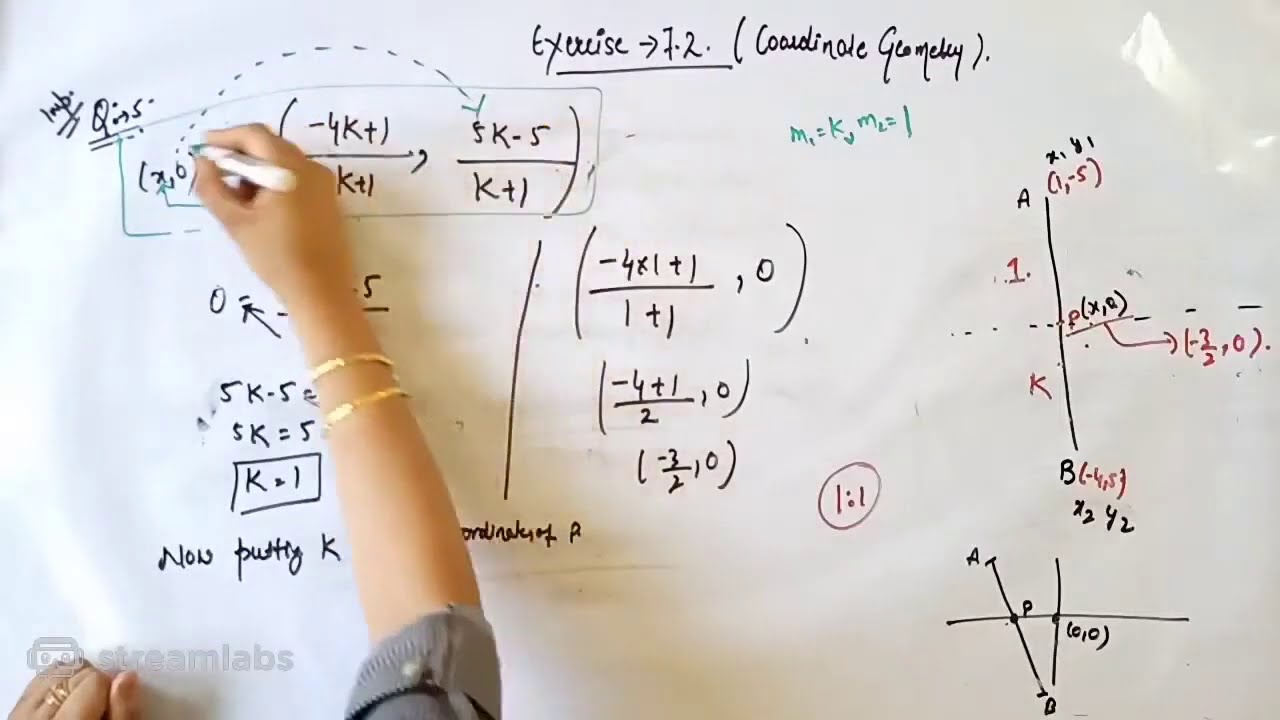 Exercise → 7.2. (Coordinate Geometry).
Imp. Q:→5.
(x,0) ( -4K+1 / K+1 , 5K-5 / K+1 )
m₁=K, m₂=1
0 = 5
5K-5=
5K = 5
K=1
Now putting K
coordinates of P
( -4×1+1 / 1+1 , 0 )
( -4+1 / 2 , 0 )
( -3/2 , 0 )
1:1
x₁ y₁
A (1,-5)
1.
P(x,0)
(-3/2, 0).
K
B(-4,5)
x₂ y₂
A
P
(0,0)
B
streamlabs